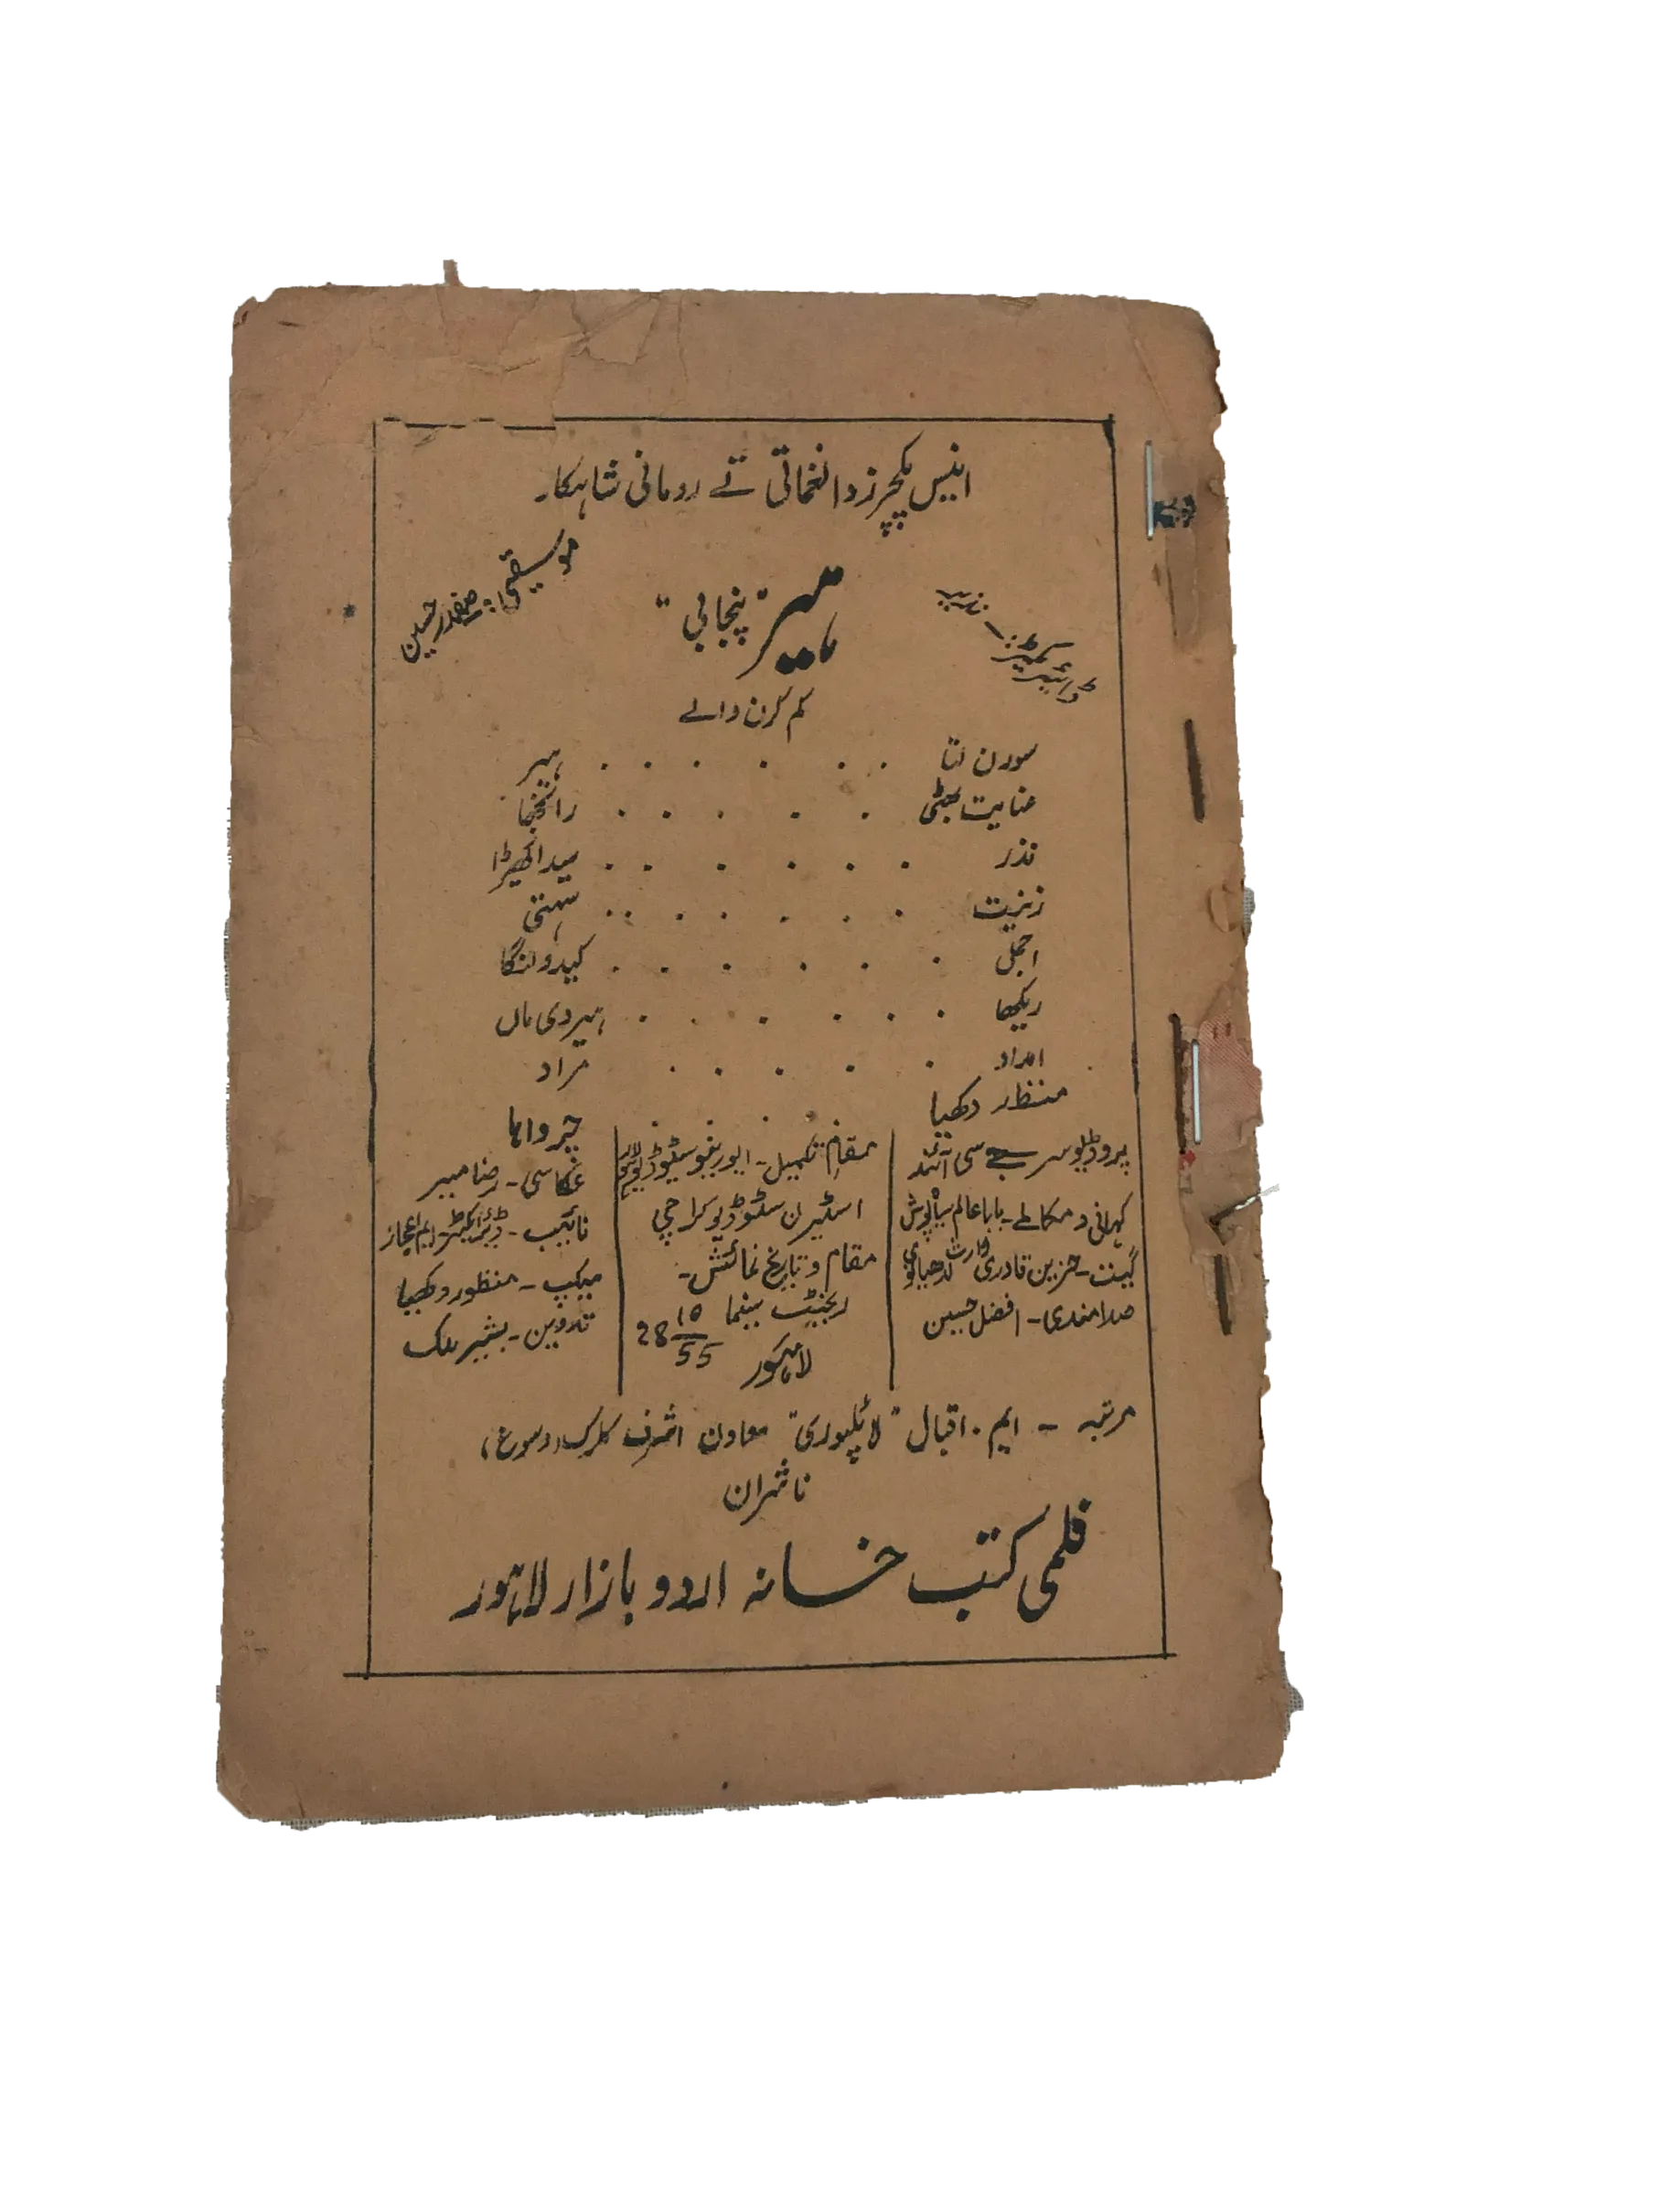 انیس پکچرز دا نغماتی تے رومانی شاہکار
ڈائریکٹر - نذیر
ہیر "پنجابی"
موسیقی: صفدر حسین
کم کرن والے
سورن لتا . . . . . . ہیر
عنایت بھٹی . . . . . رانجھا
نذر . . . . . . سیدا کھیڑا
زینت . . . . . . . سہتی
اجمل . . . . . . کیدو لنگا
ریکھا . . . . . . ہیر دی ماں
امداد . . . . . مراد
منظور دکھیا . . . . چرواہا
پروڈیوسر جے سی آنند
کہانی و مکالمے - بابا عالم سیاہ پوش
گیت - حزین قادری وارث لدھیانوی
صدا بندی - افضل حسین
مقام تکمیل - ایورنیو سٹوڈیو لاہور
ایسٹرن سٹوڈیو کراچی
مقام و تاریخ نمائش -
ریجنٹ سینما 28 10/55
لاہور
عکاسی - رضا میر
نائیب - ڈائریکٹر - ایم اعجاز
میکپ - منظور دکھیا
تدوین - بشیر ملک
مرتبہ - ایم . اقبال "لائلپوری" معاون اشرف کلرک (وسوع)
ناشران
فلمی کتب خانہ اردو بازار لاہور